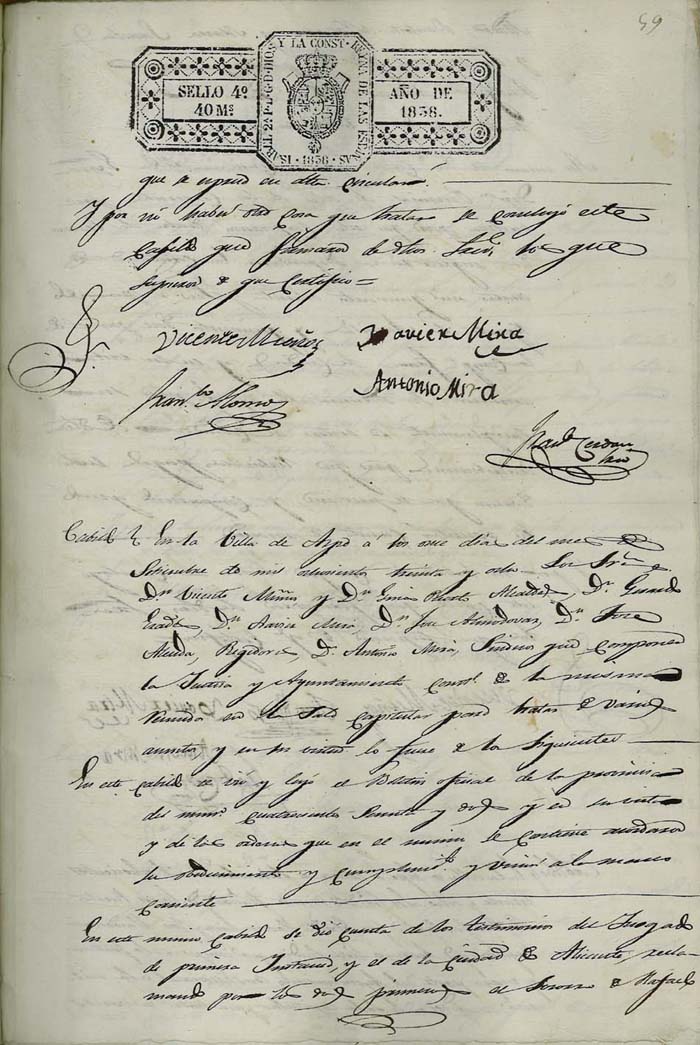 59
ISABEL 2ª P.L.G.D.DIOS Y LA CONST. REYNA DE LAS ESPAÑAS · 1838 ·
SELLO 4º
40 Ms
AÑO DE
1838.
que se espresa en dha. circular.
Y por no haber otra cosa que tratar se concluyó este
Cabildo que firmaron de dhos. Sres. los que
supieron de que Certifico =
Vicente Muñoz Xavier Mira
Franco. Alonso Antonio Mira
Cerdan
Srio
Cabildo En la Villa de Aspe á los once dias del mes
Setiembre de mil ochocientos treinta y ocho. Los Sres.
Dn Vicente Muñoz y Dn Alcaldes, Dn
Dn Xavier Mira, Dn Jose Almodovar, Dn Jose
Alcolea, Regidores, D. Antonio Mira, Sindico que componen
la Justicia y Ayuntamiento Constl. de la misma
reunido en la Sala Capitular para tratar de varios
asuntos y en su virtud lo hace de los siguientes
En este Cabildo se vió y leyó el Boletin oficial de la provincia
del num. cuatrocientos sesenta y dos y en su vista
y de las ordenes que en el mismo se contiene acordaron
su obedecimiento y cumplimto. y unirse a la mano
corriente
En este mismo Cabildo se dio cuenta de los testimonios del Juzgado
de primera Instancia, y el de la ciudad de Alicante, recla-
mando por los dos primeros el de Rafael